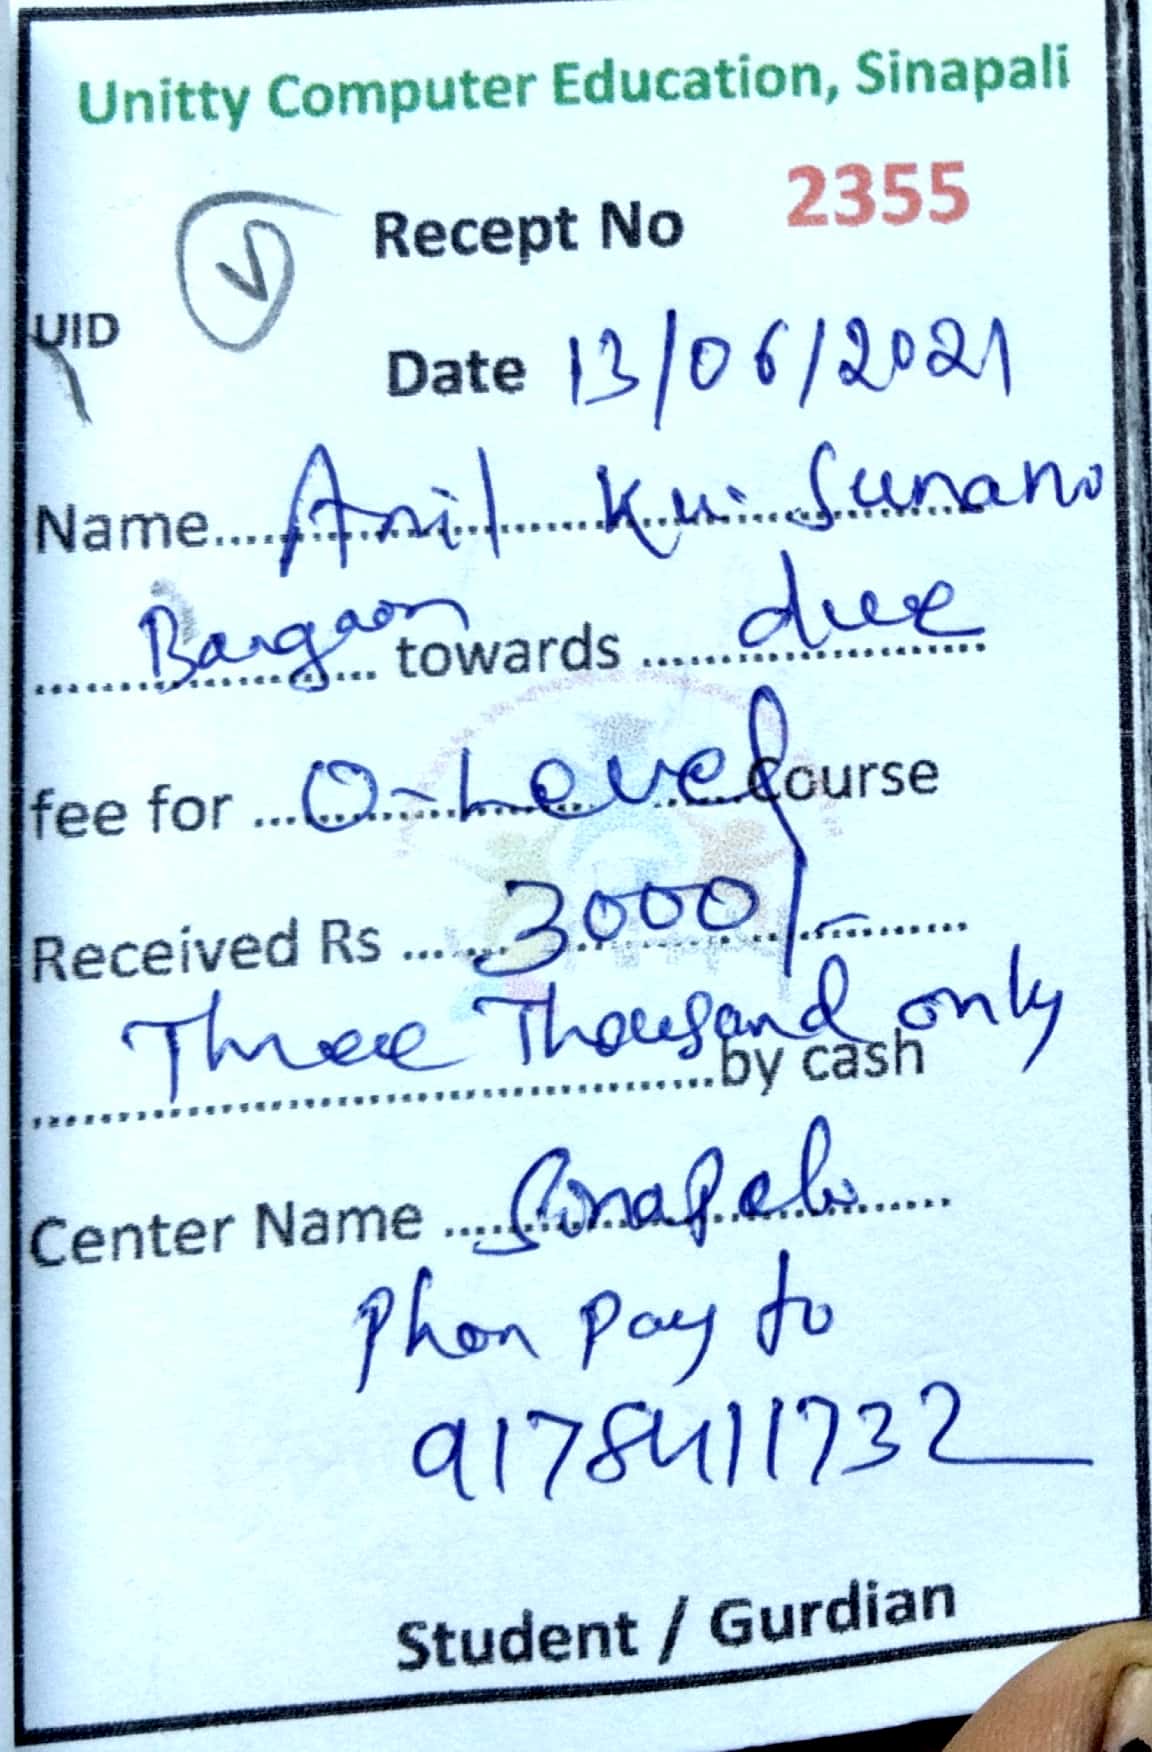 Unitty Computer Education, Sinapali
Recept No 2355
UID
Date 13/06/2021
Name Anil Ku. Sunani
Bargaon towards due
fee for O-Level Course
Received Rs 3000/-
Three Thousand only
by cash
Center Name Sinapali
Phon pay to
9178411732
Student / Gurdian